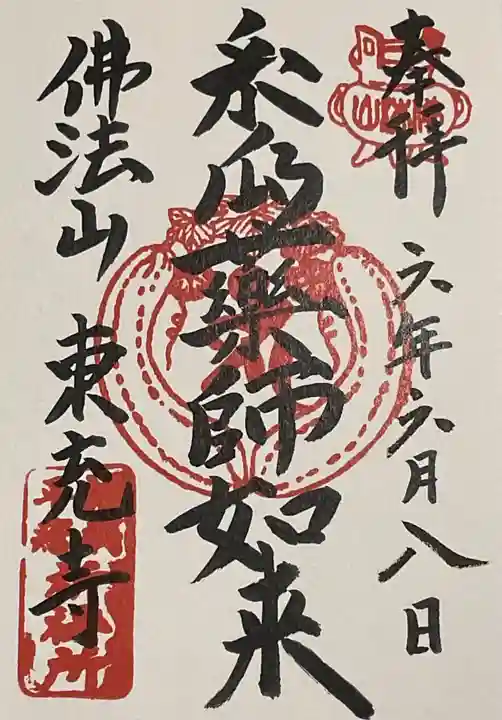 奉拝 六年六月八日
糸瓜藥師如来
佛法山 東充寺